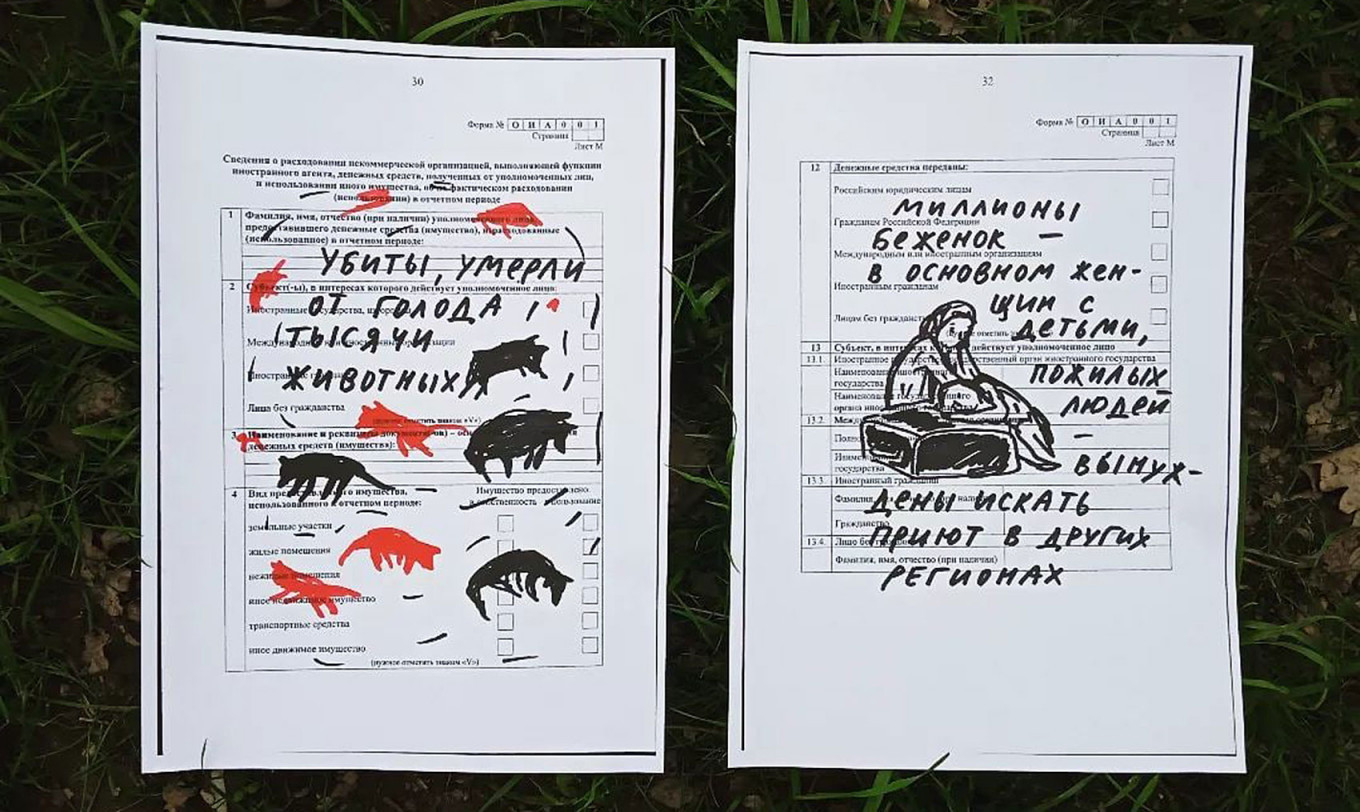 30
Форма № О И А 0 0 1
Страница
Лист М
Сведения о расходовании некоммерческой организацией, выполняющей функции
иностранного агента, денежных средств, полученных от уполномоченных лиц,
и использовании иного имущества, фактическом расходовании
(использовании) в отчетном периоде
1 Фамилия, имя, отчество (при наличии) уполномоченного лица,
предоставившего денежные средства (имущество), израсходованные
(использованное) в отчетном периоде:
УБИТЫ, УМЕРЛИ
2 Субъект(-ы), в интересах которого действует уполномоченное лицо:
ОТ ГОЛОДА
Иностранные государства,
ТЫСЯЧИ
ЖИВОТНЫХ
Лица без гражданства
(нужное отметить знаком «V»)
3 Наименование и реквизиты
денежных средств (имущества):
4 Вид предоставленного имущества,
использованного в отчетном периоде:
Имущество предоставлено
в собственность
земельные участки
жилые помещения
нежилые помещения
иное недвижимое имущество
транспортные средства
иное движимое имущество
(нужное отметить знаком «V»)
32
Форма № О И А 0 0 1
Страница
Лист М
12 Денежные средства переданы:
Российским юридическим лицам
МИЛЛИОНЫ
Гражданам Российской Федерации
БЕЖЕНОК –
Международным или иностранным организациям
В ОСНОВНОМ ЖЕН-
Иностранным гражданам
ЩИН С
Лицам без гражданства
ДЕТЬМИ,
13 Субъект, в интересах действует уполномоченное лицо
13.1. Иностранное государственный орган иностранного государства
Наименование иностранного
государства
ПОЖИЛЫХ
Наименование государственного
органа
ЛЮДЕЙ
13.2.
–
ВЫНУЖ-
государства
13.3. Иностранный гражданин
Фамилия,
ДЕНЫ ИСКАТЬ
Гражданство
13.4. Лицо без
ПРИЮТ В ДРУГИХ
Фамилия, имя, отчество (при наличии)
РЕГИОНАХ